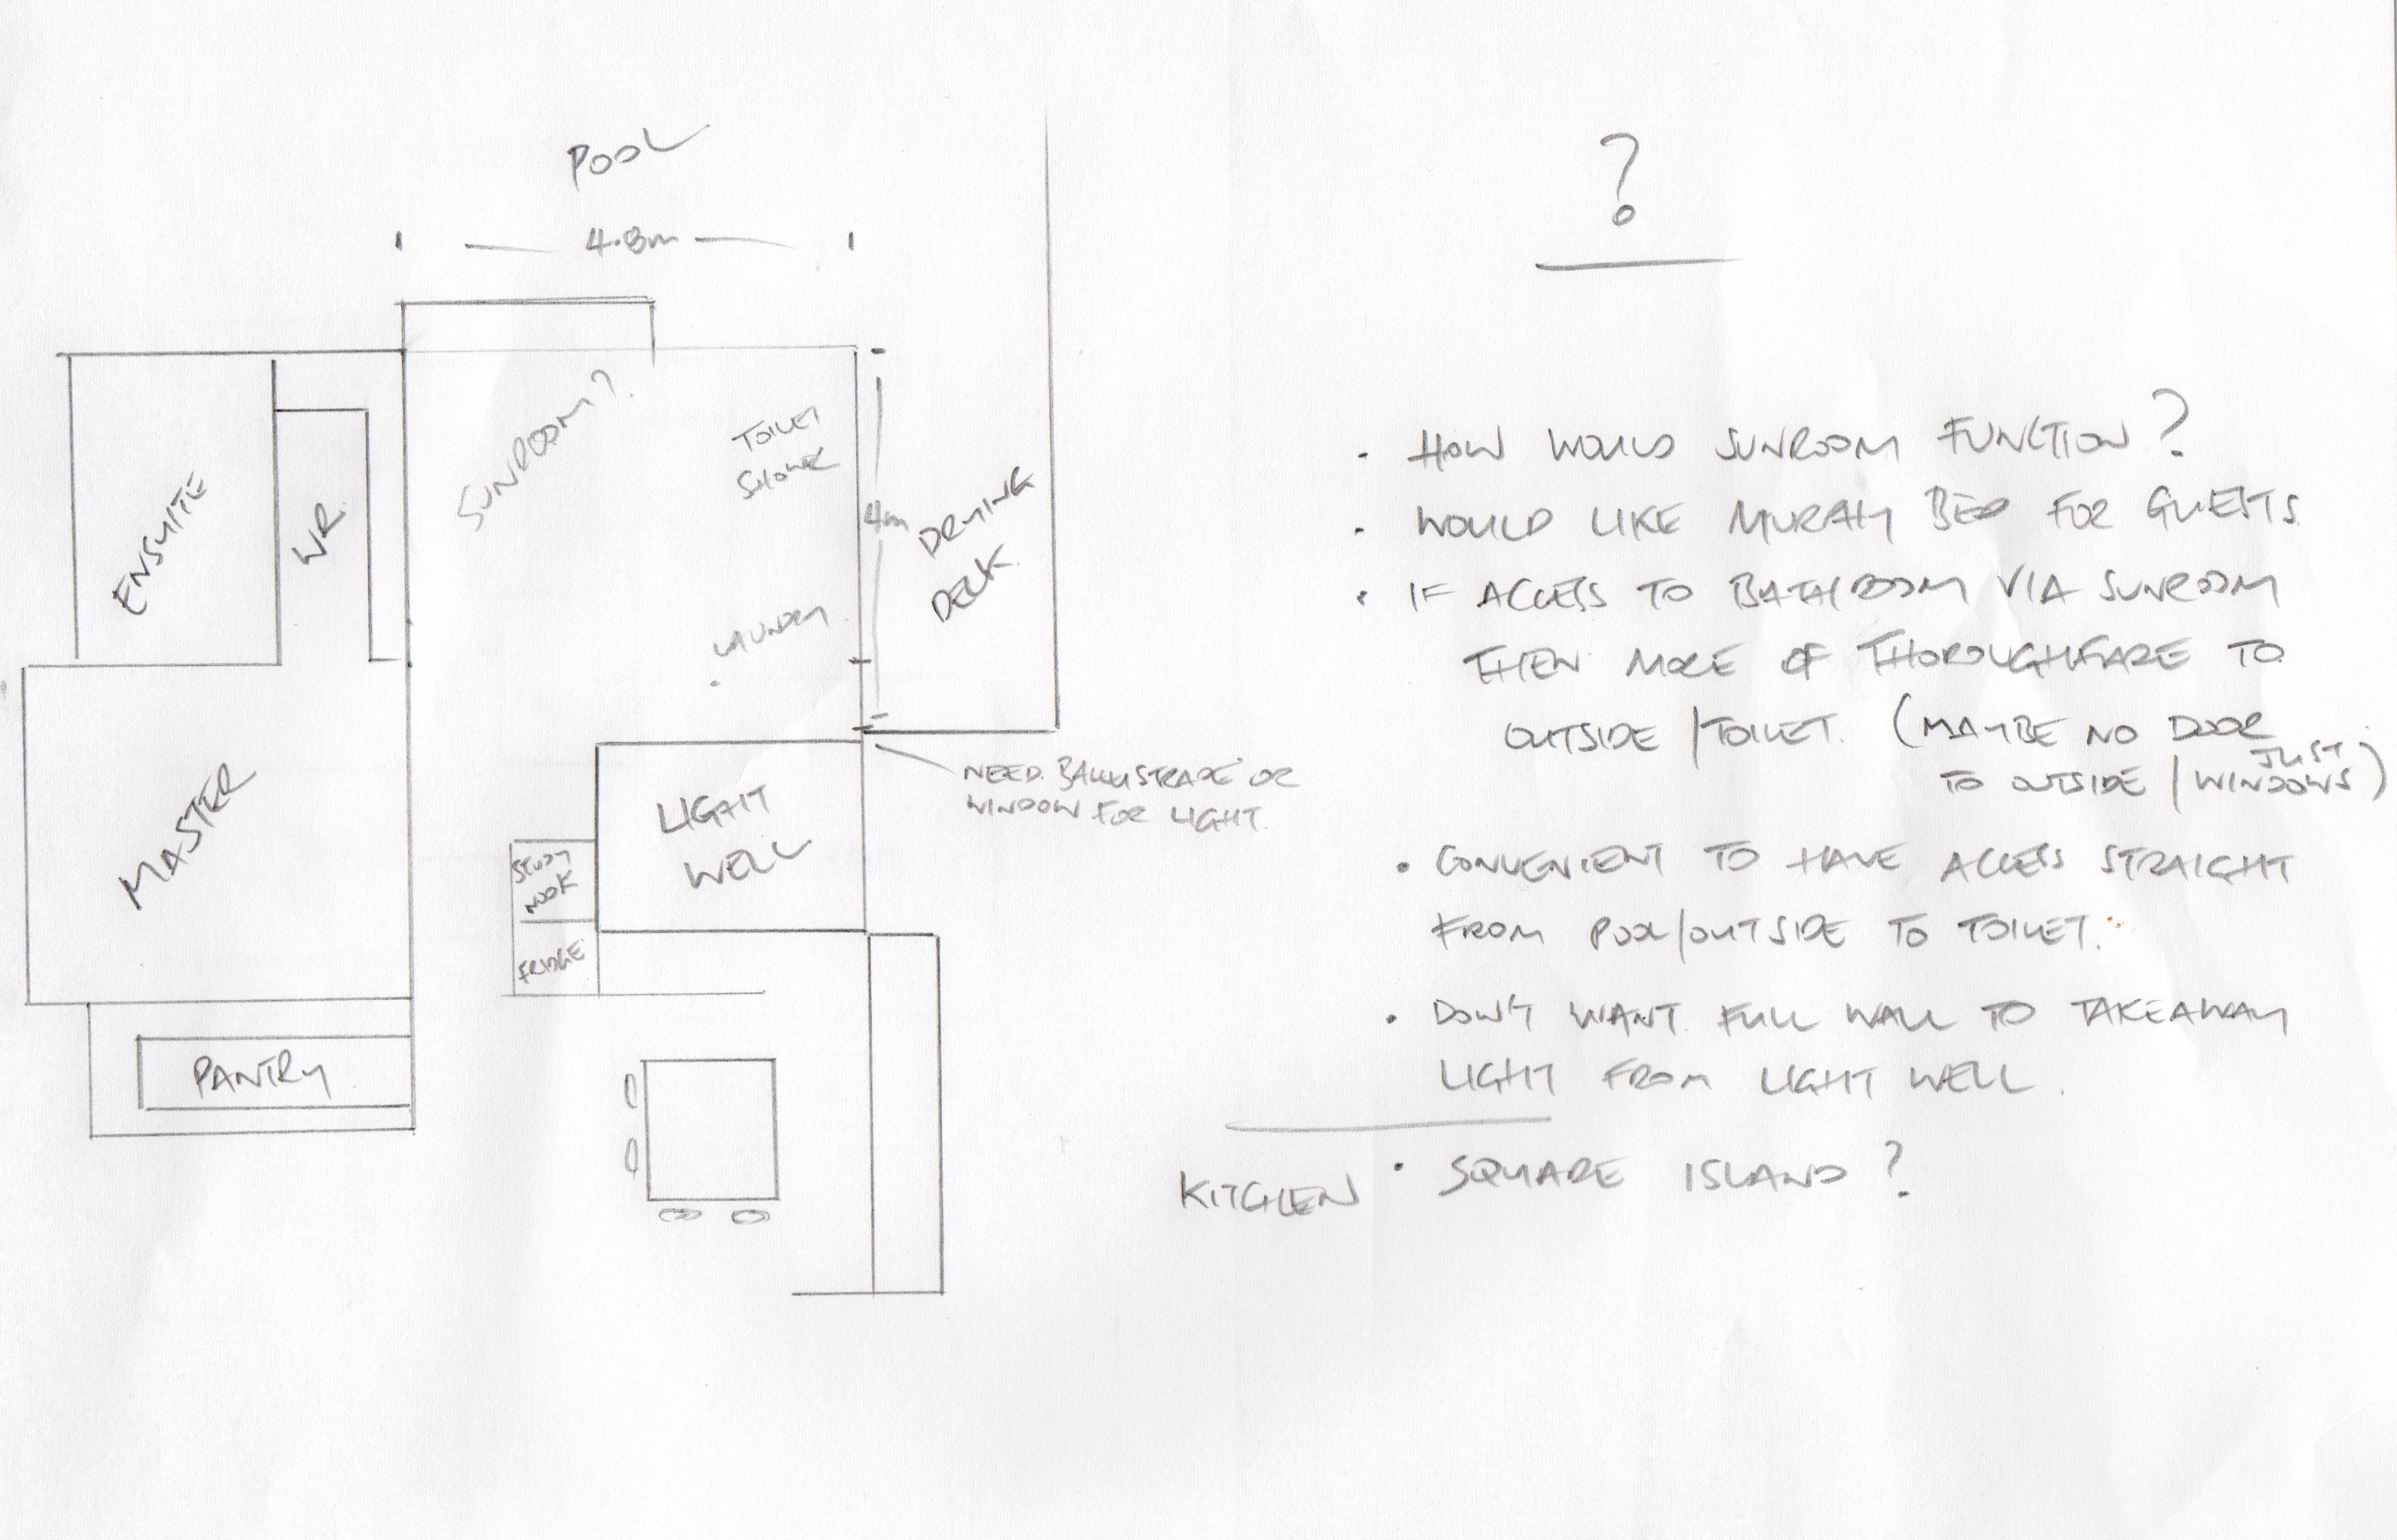 POOL
4.8m
SUNROOM?
TOILET
SHOWER
4m
DRYING
DECK
ENSUITE
WR.
LAUNDRY.
MASTER
LIGHT
WELL
NEED BALLUSTRADE OR
WINDOW FOR LIGHT.
STUDY
NOOK
FRIDGE
PANTRY
?
• HOW WOULD SUNROOM FUNCTION?
• WOULD LIKE MURAHY BED FOR GUESTS
• IF ACCESS TO BATHROOM VIA SUNROOM
THEN MORE OF THOROUGHFARE TO
OUTSIDE/TOILET. (MAYBE NO DOOR
TO OUTSIDE / JUST WINDOWS)
• CONVENIENT TO HAVE ACCESS STRAIGHT
FROM POOL/OUTSIDE TO TOILET.
• DON'T WANT FULL WALL TO TAKEAWAY
LIGHT FROM LIGHT WELL.
KITCHEN • SQUARE ISLAND?